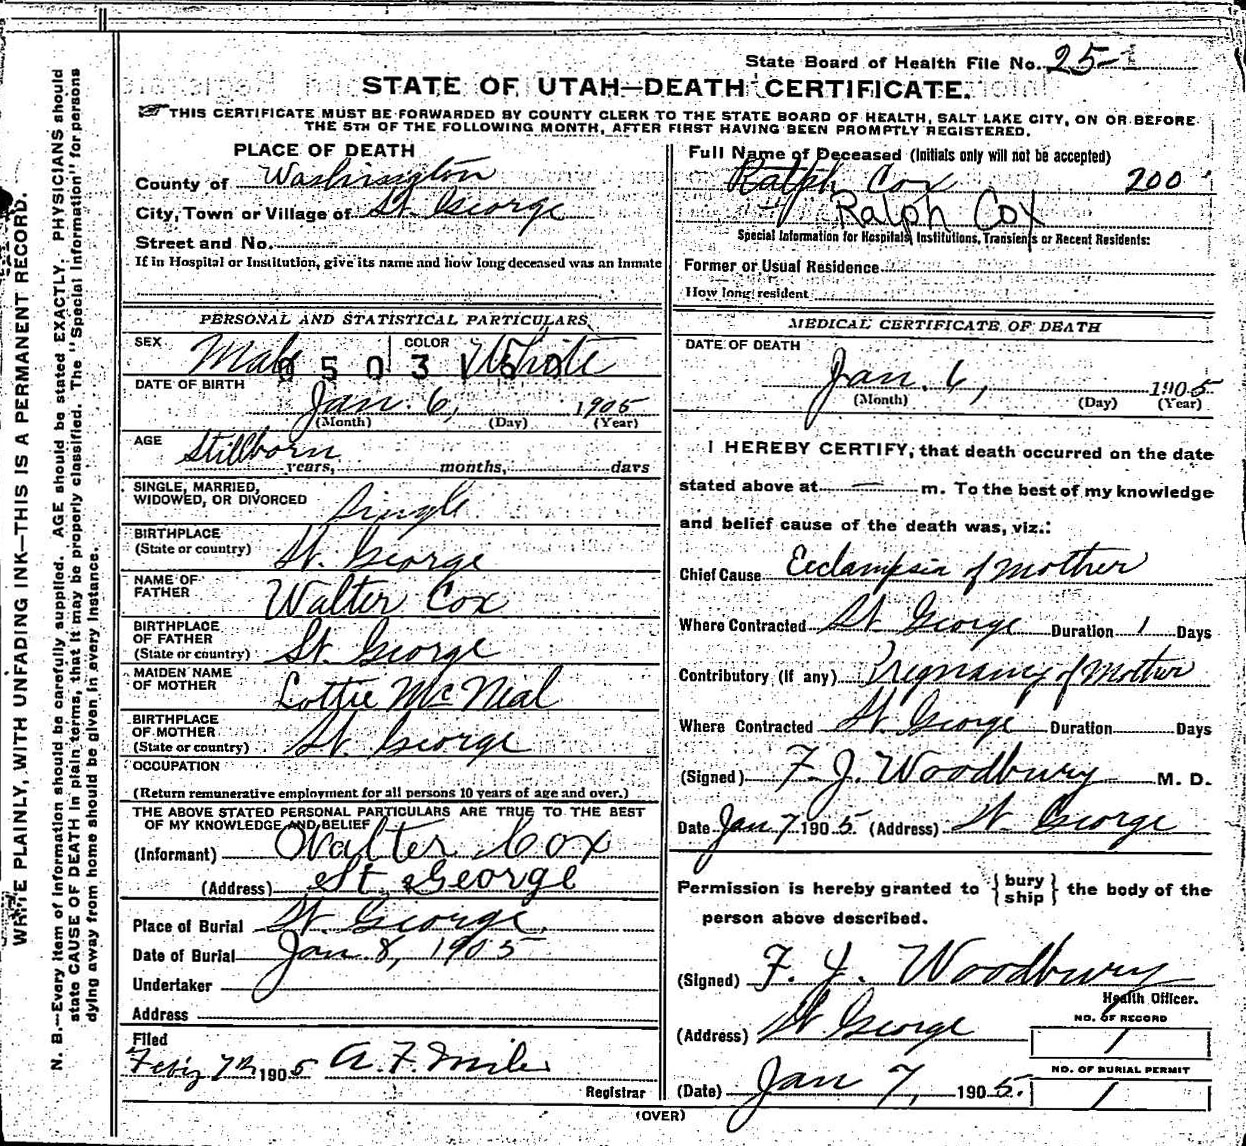 State Board of Health File No. 25
STATE OF UTAH—DEATH CERTIFICATE.
THIS CERTIFICATE MUST BE FORWARDED BY COUNTY CLERK TO THE STATE BOARD OF HEALTH, SALT LAKE CITY, ON OR BEFORE
THE 5TH OF THE FOLLOWING MONTH, AFTER FIRST HAVING BEEN PROMPTLY REGISTERED.
WRITE PLAINLY, WITH UNFADING INK—THIS IS A PERMANENT RECORD.
N. B.—Every item of information should be carefully supplied. AGE should be stated EXACTLY. PHYSICIANS should
state CAUSE OF DEATH in plain terms, that it may be properly classified. The "Special Information" for persons
dying away from home should be given in every instance.
PLACE OF DEATH
County of Washington
City, Town or Village of St. George
Street and No.
If in Hospital or Institution, give its name and how long deceased was an Inmate
PERSONAL AND STATISTICAL PARTICULARS
SEX Male COLOR White
0503150
DATE OF BIRTH
Jan. 6, 1905
(Month) (Day) (Year)
AGE Stillborn
years, months, days
SINGLE, MARRIED,
WIDOWED, OR DIVORCED Single
BIRTHPLACE
(State or country) St. George
NAME OF
FATHER Walter Cox
BIRTHPLACE
OF FATHER
(State or country) St. George
MAIDEN NAME
OF MOTHER Lottie McNeal
BIRTHPLACE
OF MOTHER
(State or country) St. George
OCCUPATION
(Return remunerative employment for all persons 10 years of age and over.)
THE ABOVE STATED PERSONAL PARTICULARS ARE TRUE TO THE BEST
OF MY KNOWLEDGE AND BELIEF
(Informant) Walter Cox
(Address) St. George
Place of Burial St. George
Date of Burial Jan. 8, 1905
Undertaker
Address
Filed
Feb'y 7th 1905 A. F. Miles
Registrar
Full Name of Deceased (Initials only will not be accepted)
Ralph Cox 200
Ralph Cox
Special Information for Hospitals, Institutions, Transients or Recent Residents:
Former or Usual Residence
How long resident
MEDICAL CERTIFICATE OF DEATH
DATE OF DEATH
Jan. 6, 1905
(Month) (Day) (Year)
I HEREBY CERTIFY, that death occurred on the date
stated above at — m. To the best of my knowledge
and belief cause of the death was, viz.:
Chief Cause Ecclampsia of mother
Where Contracted St. George Duration 1 Days
Contributory (If any) Pregnancy of Mother
Where Contracted St. George Duration Days
(Signed) F. J. Woodbury M. D.
Date Jan 7 1905. (Address) St. George
Permission is hereby granted to { bury ship } the body of the
person above described.
(Signed) F. J. Woodbury
Health Officer.
(Address) St George
NO. OF RECORD
1
NO. OF BURIAL PERMIT
(Date) Jan 7, 1905. 1
(OVER)